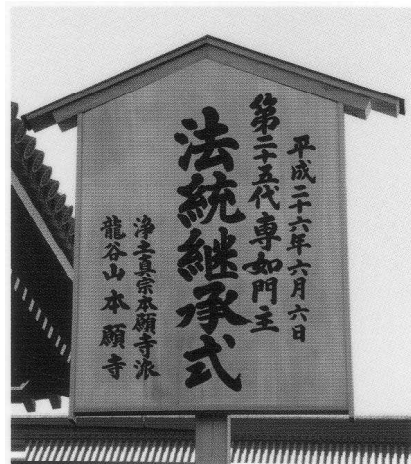 平成二十六年六月六日
第二十五代専如門主
法統継承式
浄土真宗本願寺派
龍谷山本願寺